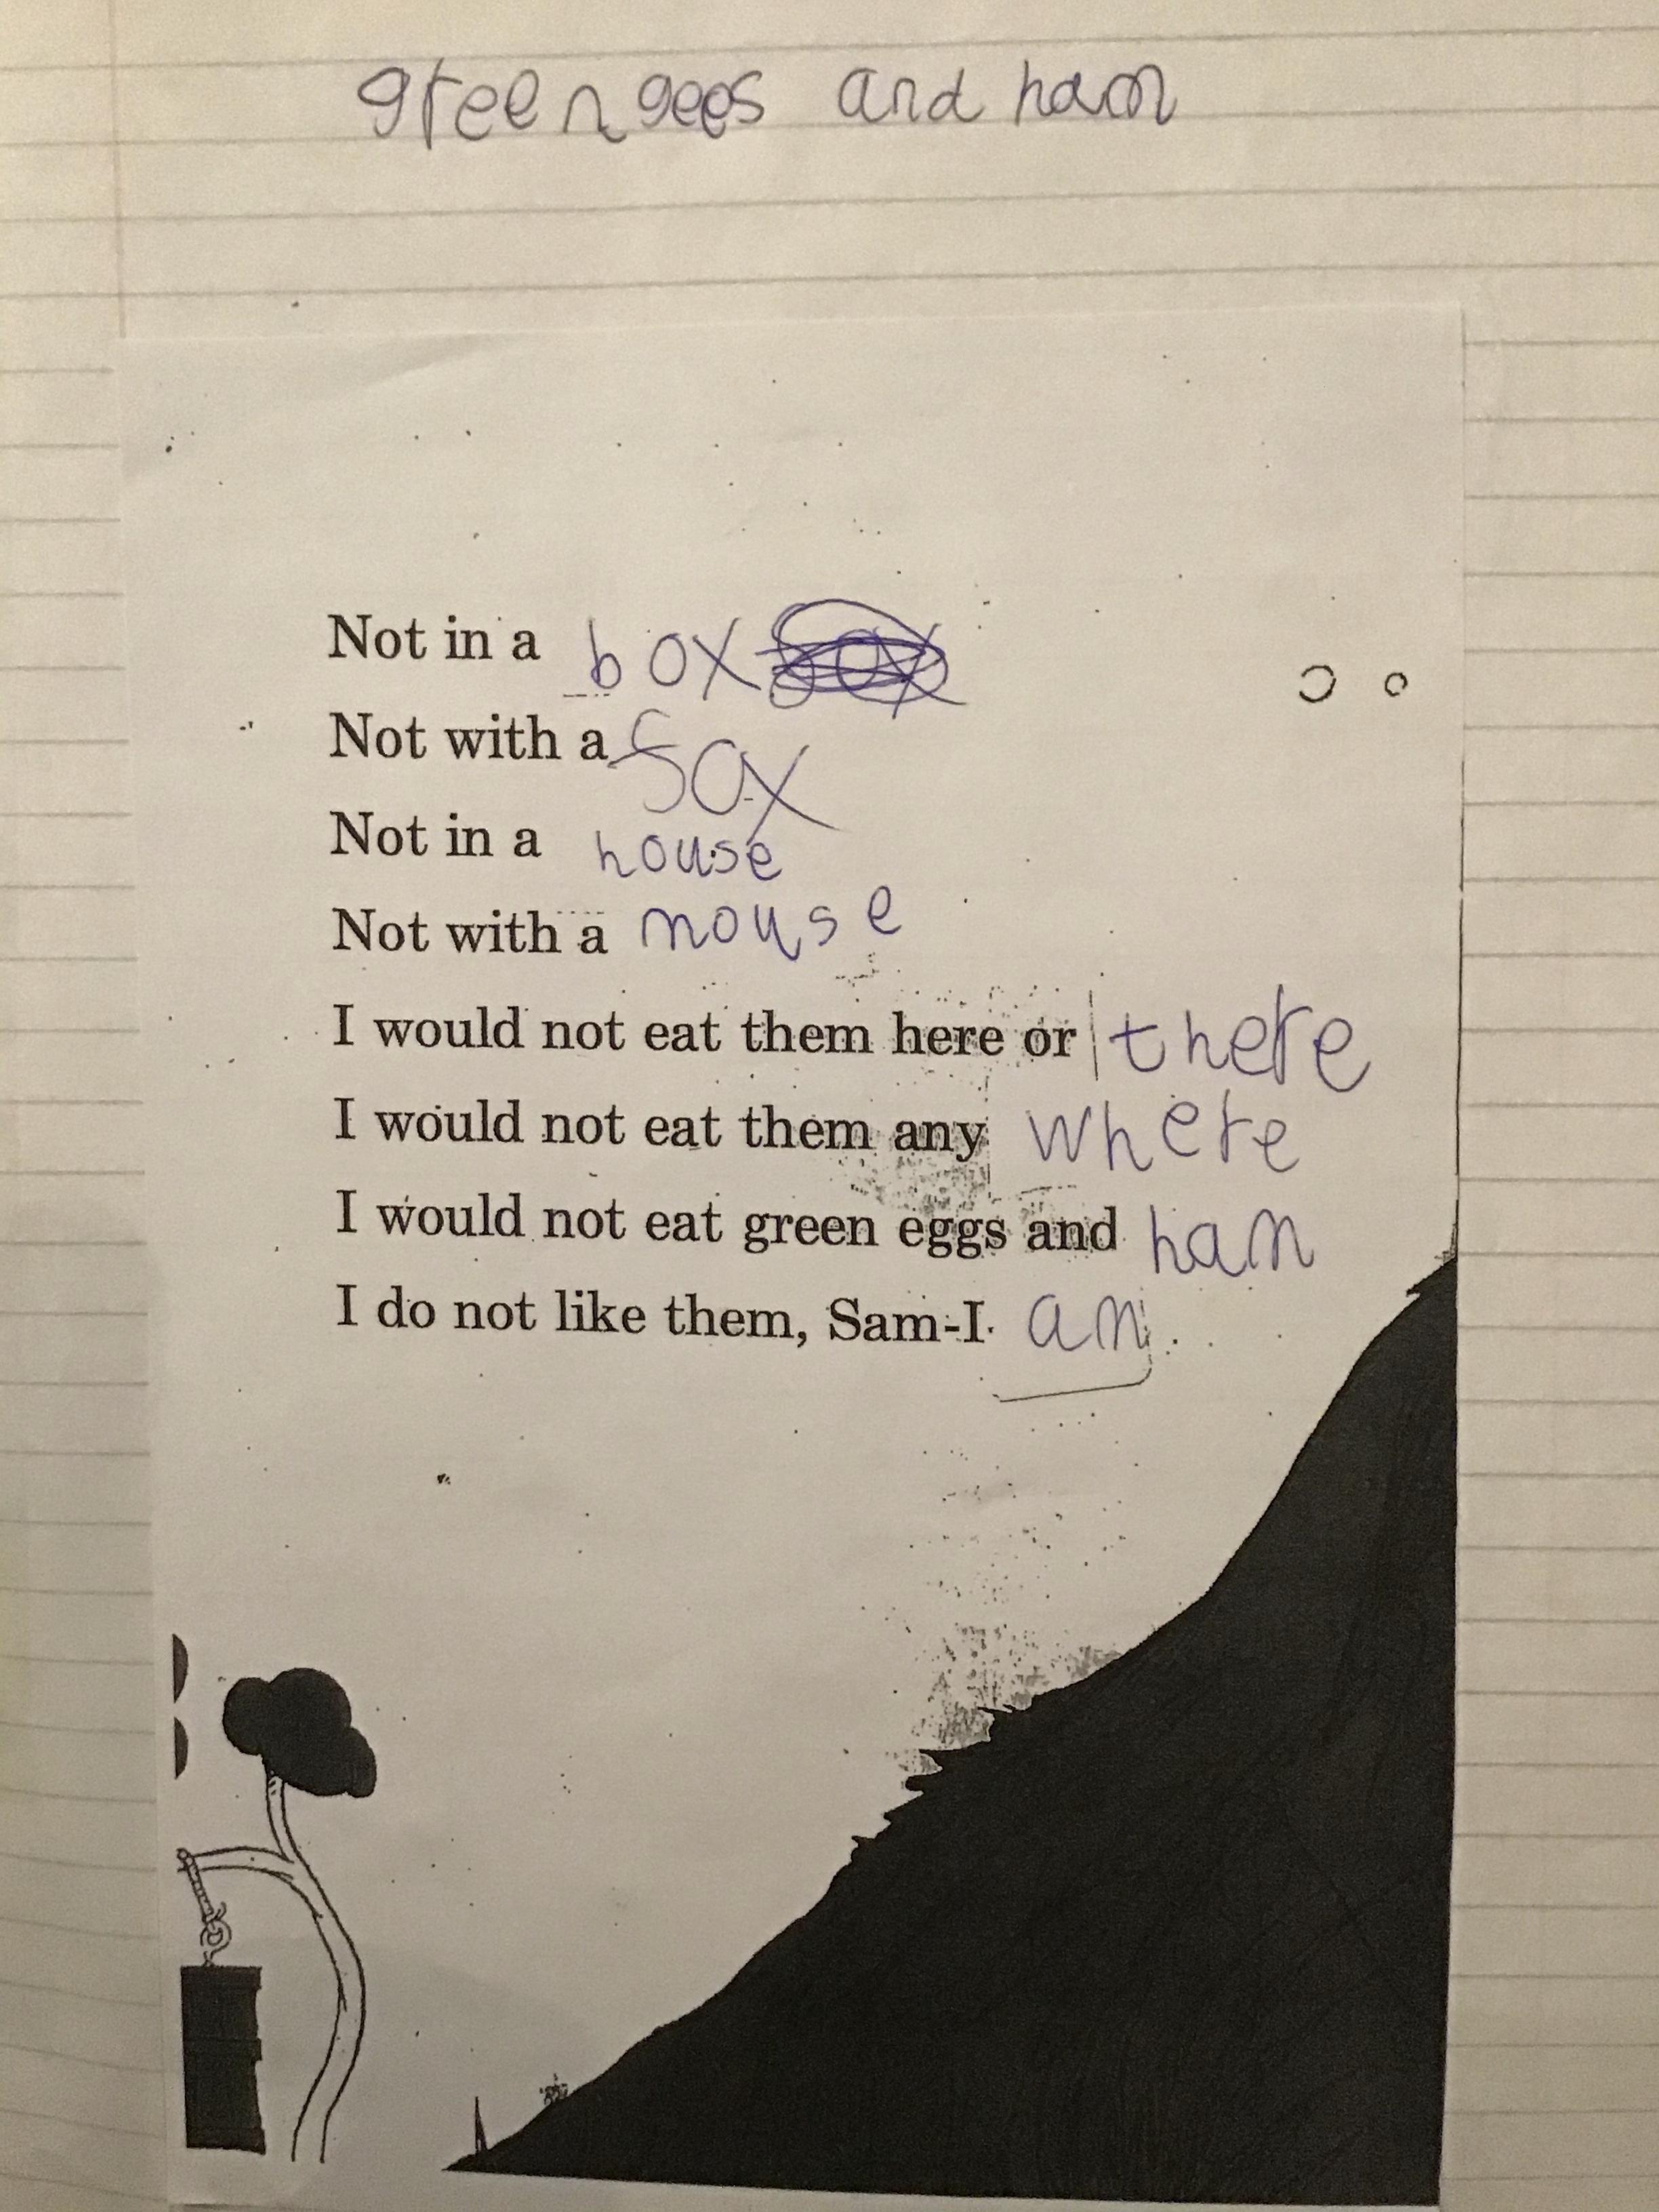 green gees and ham
Not in a box
Not with a fox
Not in a house
Not with a mouse
I would not eat them here or there
I would not eat them any where
I would not eat green eggs and ham
I do not like them, Sam-I am